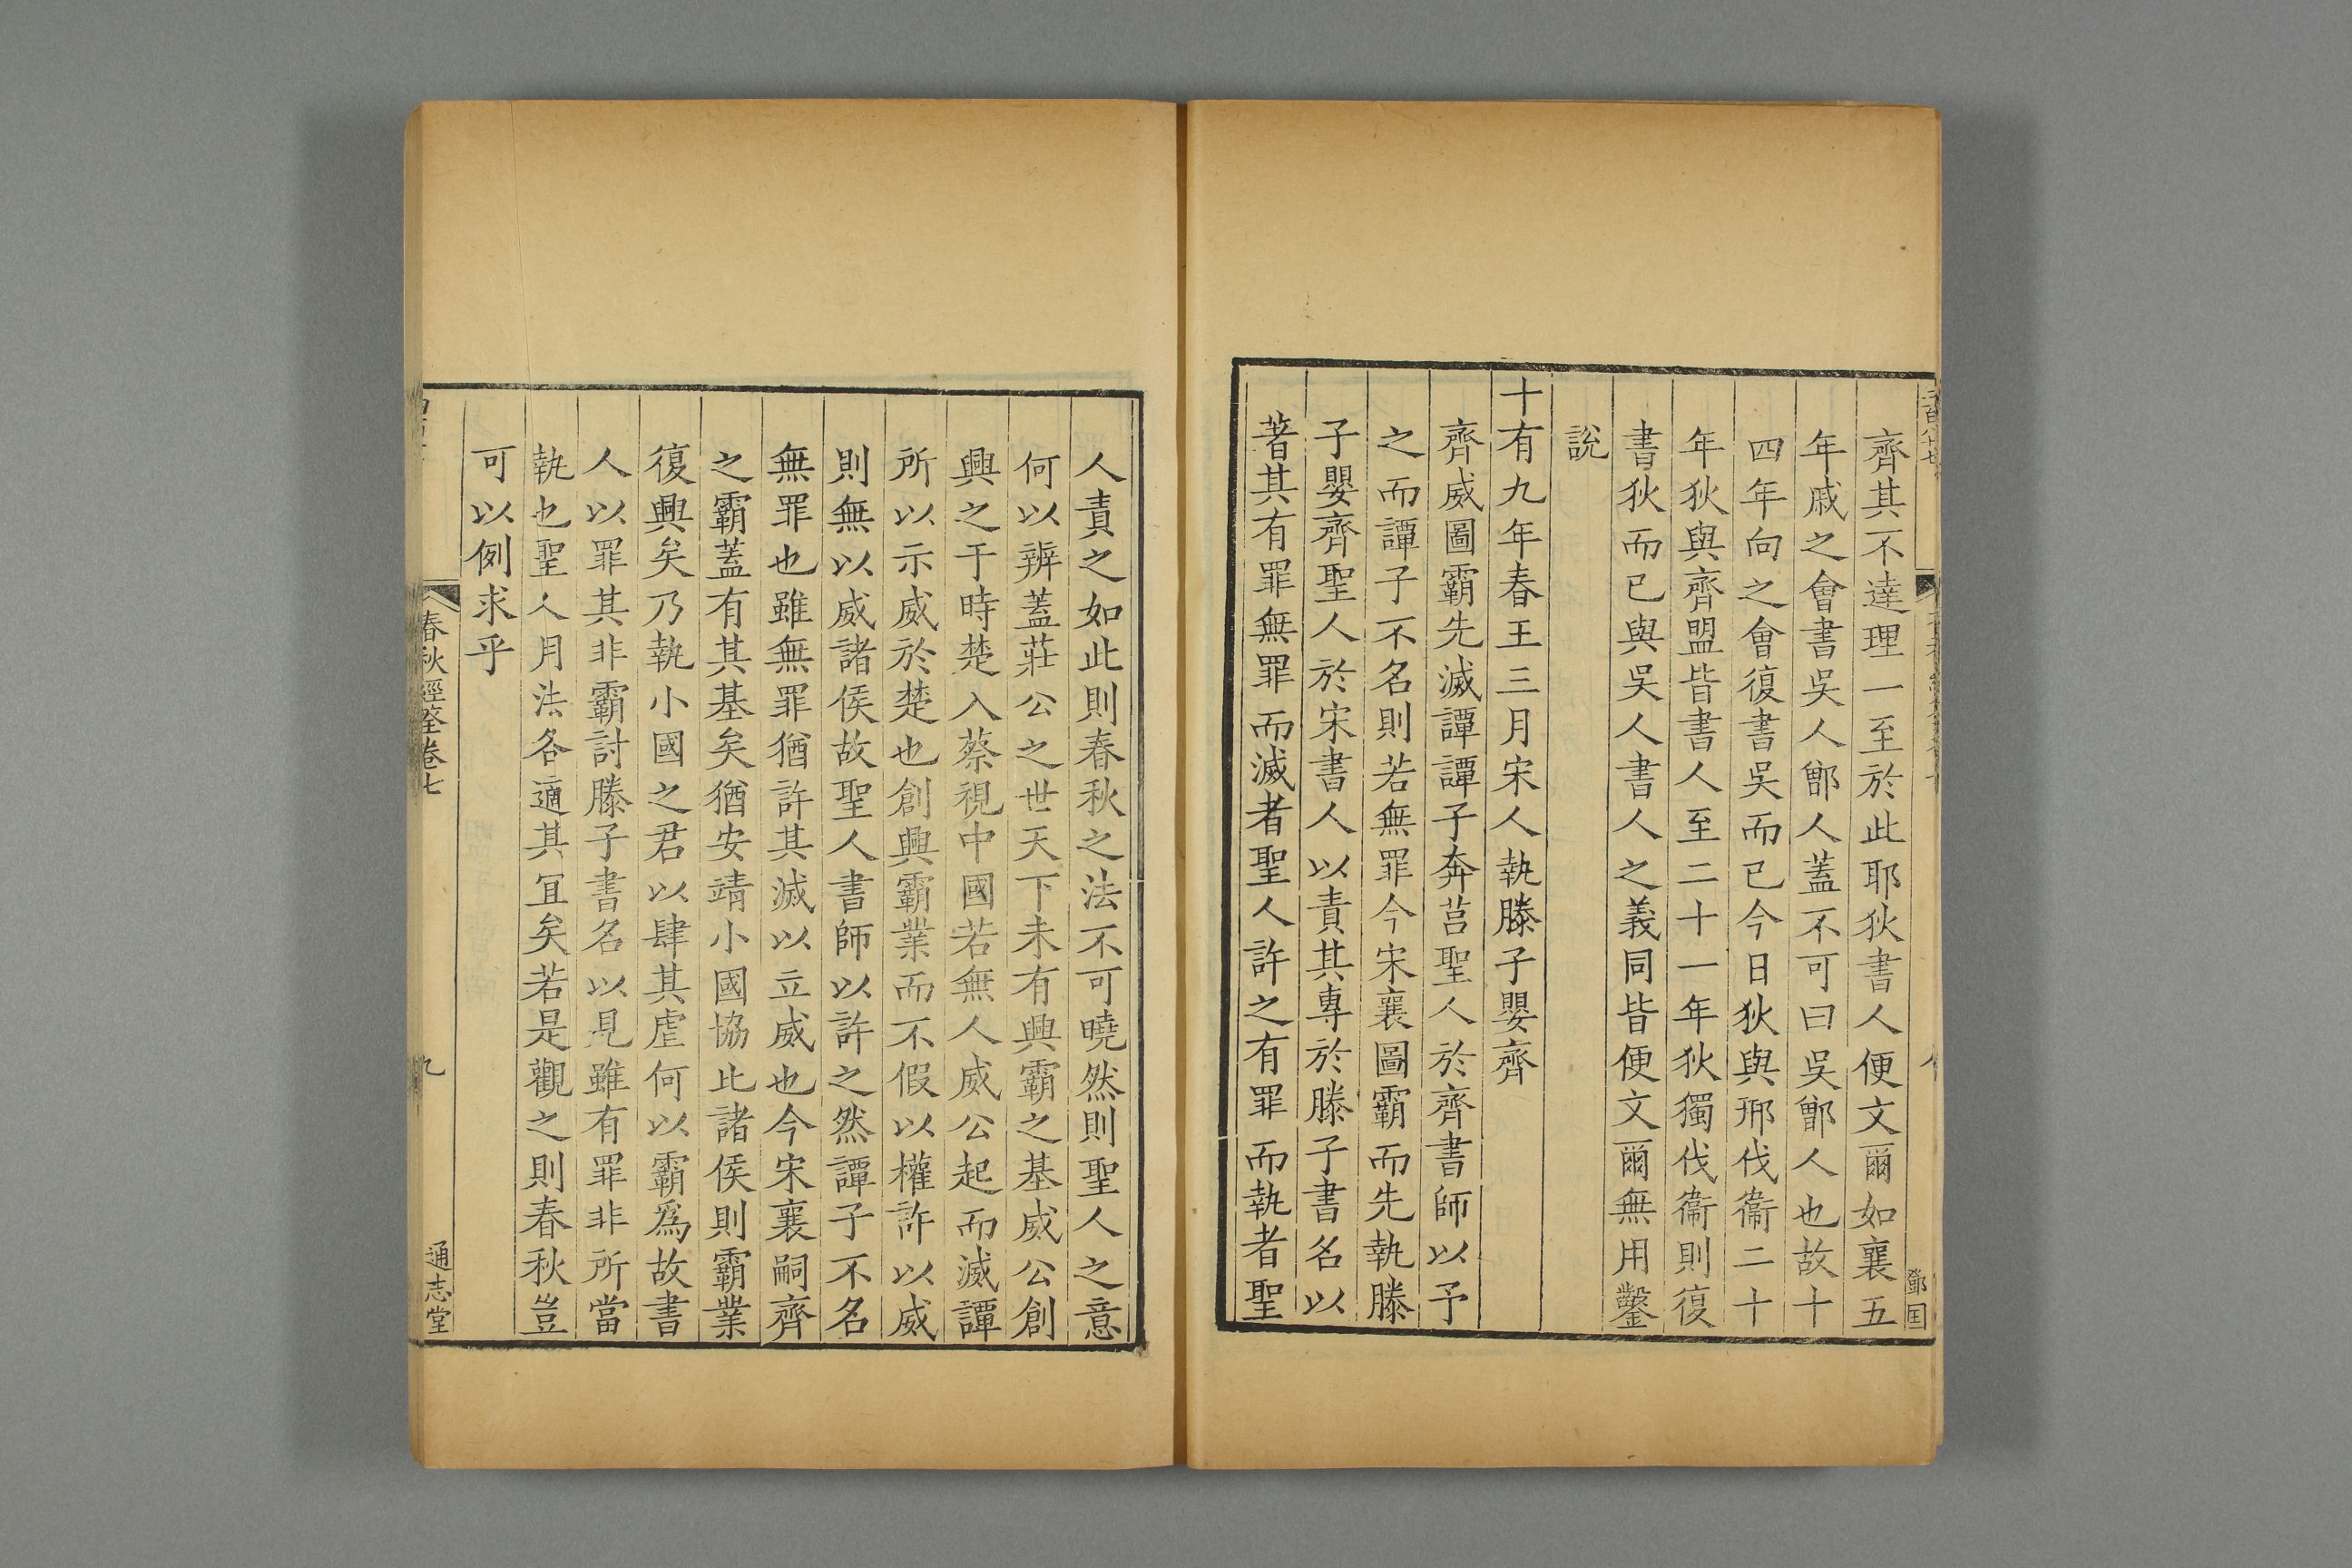 齊其不達理一至於此耶狄書人便文爾如襄五
年戚之會書吳人鄫人蓋不可曰吳鄫人也故十
四年向之會復書吳而已今日狄與邢伐衞二十
年狄與齊盟皆書人至二十一年狄獨伐衞則復
書狄而已與吳人書人之義同皆便文爾無用鑿
說
十有九年春王三月宋人執滕子嬰齊
齊威圖霸先滅譚譚子奔莒聖人於齊書師以予
之而譚子不名則若無罪今宋襄圖霸而先執滕
子嬰齊聖人於宋書人以責其專於滕子書名以
著其有罪無罪而滅者聖人許之有罪而執者聖
人責之如此則春秋之法不可曉然則聖人之意
何以辨蓋莊公之世天下未有興霸之基威公創
興之于時楚入蔡視中國若無人威公起而滅譚
所以示威於楚也創興霸業而不假以權許以威
則無以威諸侯故聖人書師以許之然譚子不名
無罪也雖無罪猶許其滅以立威也今宋襄嗣齊
之霸蓋有其基矣猶安靖小國協此諸侯則霸業
復興矣乃執小國之君以肆其虐何以霸爲故書
人以罪其非霸討滕子書名以見雖有罪非所當
執也聖人用法各適其宜矣若是觀之則春秋豈
可以例求乎
春秋經筌卷七
九
通志堂